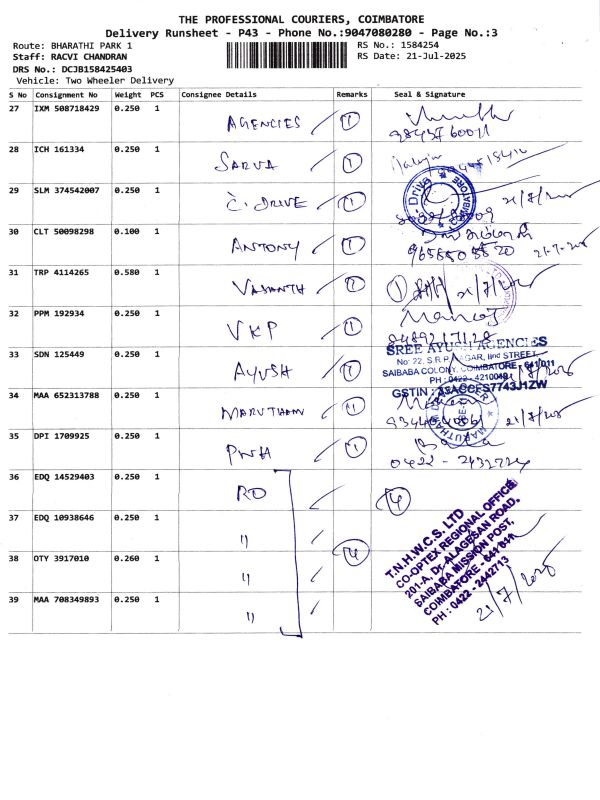 THE PROFESSIONAL COURIERS, COIMBATORE
Delivery Runsheet - P43 - Phone No.:9047080280 - Page No.:3
Route: BHARATHI PARK 1
RS No.: 1584254
Staff: RACVI CHANDRAN
RS Date: 21-Jul-2025
DRS No.: DCJB158425403
Vehicle: Two Wheeler Delivery
S No Consignment No Weight PCS Consignee Details Remarks Seal & Signature
27 IXM 508718429 0.250 1 AGENCIES 1
28 ICH 161334 0.250 1 SARVA 1
29 SLM 374542007 0.250 1 C. DRIVE 1
30 CLT 50098298 0.100 1 ANTONY 1
31 TRP 4114265 0.580 1 VASANTH 1 1
32 PPM 192934 0.250 1 VKP 1
33 SDN 125449 0.250 1 AYUSH 1
SREE AYUSH AGENCIES
No: 22, S.R.P. NAGAR, IInd STREET,
SAIBABA COLONY, COIMBATORE - 641 011
PH : 0422 - 4210049
GSTIN : 33ACCFS7743J1ZW
34 MAA 652313788 0.250 1 MARUTHAM 1
35 DPI 1709925 0.250 1 PWH 1
0422 -
36 EDQ 14529403 0.250 1 RO 4
37 EDQ 10938646 0.250 1 " 4
38 OTY 3917010 0.260 1 "
39 MAA 708349893 0.250 1 "
T.N.H.W.C.S. LTD
CO-OPTEX REGIONAL OFFICE
201-A, Dr. ALAGESAN ROAD,
SAIBABA MISSION POST,
COIMBATORE - 641 011
PH : 0422 - 2442713